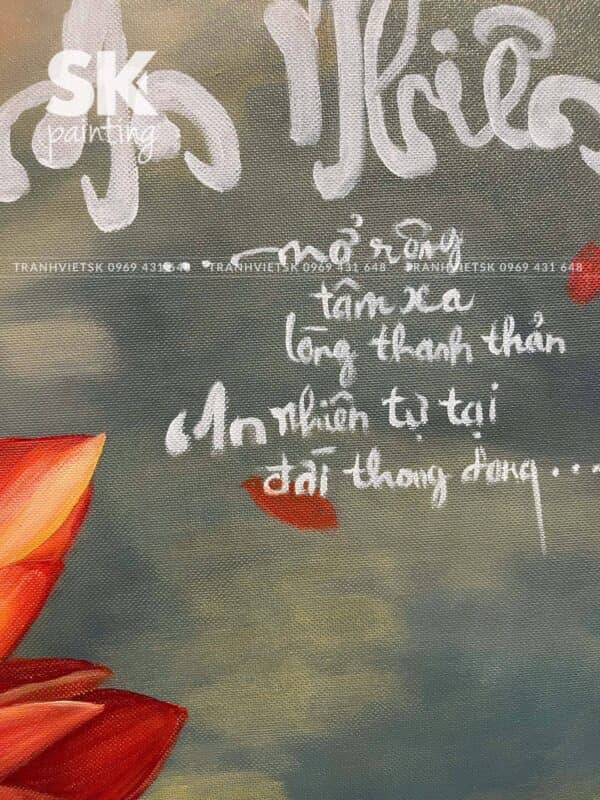 An Nhiên
SK
painting
.....mở rộng
TRANHVIETSK 0969 431 648 TRANHVIETSK 0969 431 648 TRANHVIETSK 0969 431 648
tâm xa
lòng thanh thản
An nhiên tự tại
đời thong dong...